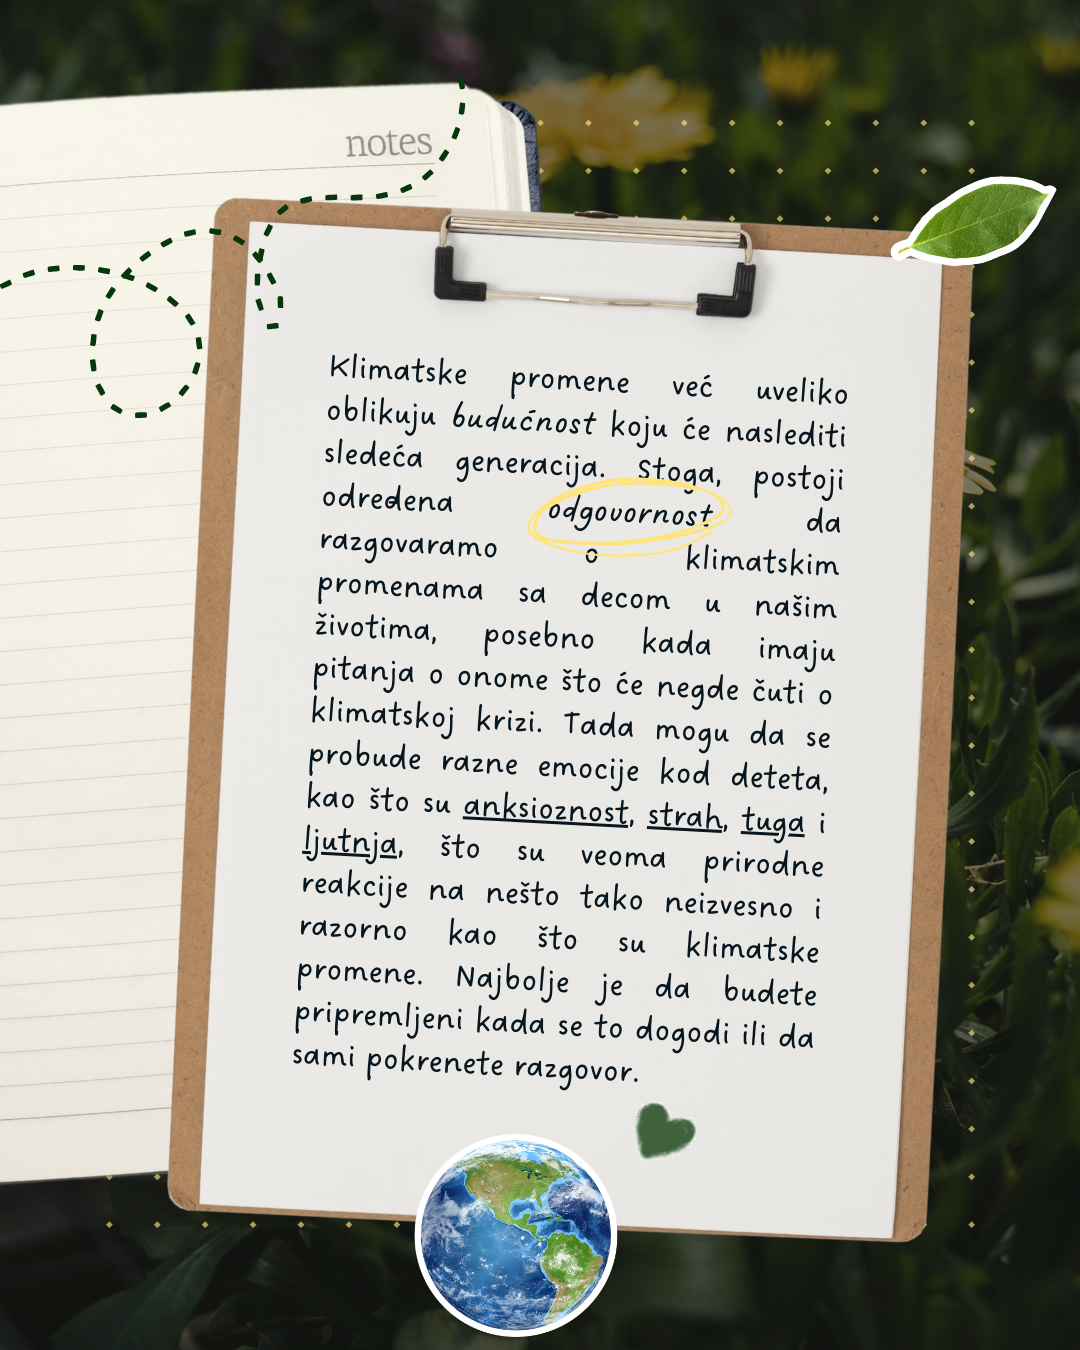 notes
Klimatske promene već uveliko
oblikuju budućnost koju će naslediti
sledeća generacija. Stoga, postoji
određena odgovornost da
razgovaramo o klimatskim
promenama sa decom u našim
životima, posebno kada imaju
pitanja o onome što će negde čuti o
klimatskoj krizi. Tada mogu da se
probude razne emocije kod deteta,
kao što su anksioznost, strah, tuga i
ljutnja, što su veoma prirodne
reakcije na nešto tako neizvesno i
razorno kao što su klimatske
promene. Najbolje je da budete
pripremljeni kada se to dogodi ili da
sami pokrenete razgovor.